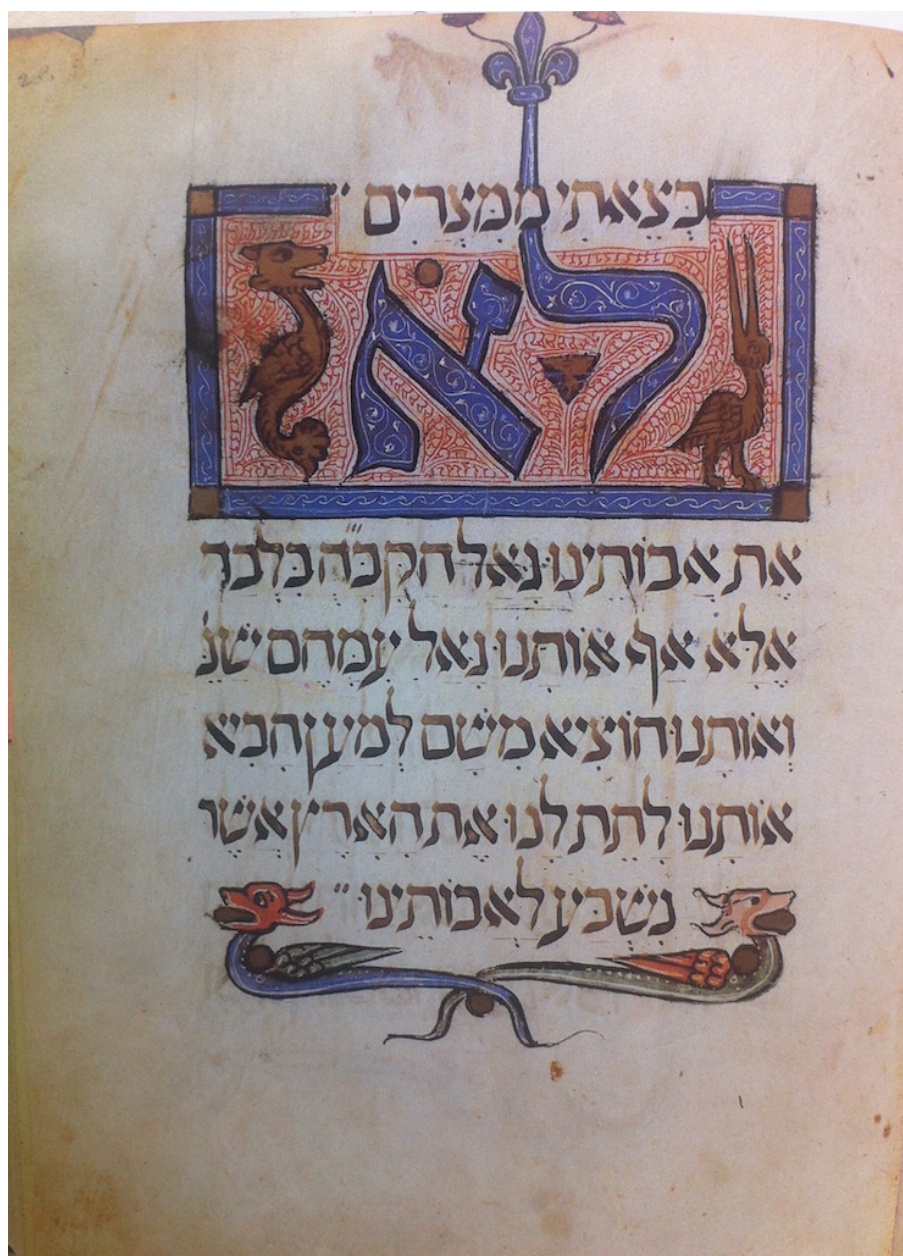 בְּצֵאתִי מִמִּצְרַיִם
לֹא
אֶת אֲבוֹתֵינוּ גָּאַל הקב״ה בִּלְבָד
אֶלָּא אַף אוֹתָנוּ גָּאַל עִמָּהֶם שֶׁנֶּ׳
וְאוֹתָנוּ הוֹצִיא מִשָּׁם לְמַעַן הָבִיא
אוֹתָנוּ לָתֵת לָנוּ אֶת הָאָרֶץ אֲשֶׁר
נִשְׁבַּע לַאֲבוֹתֵינוּ